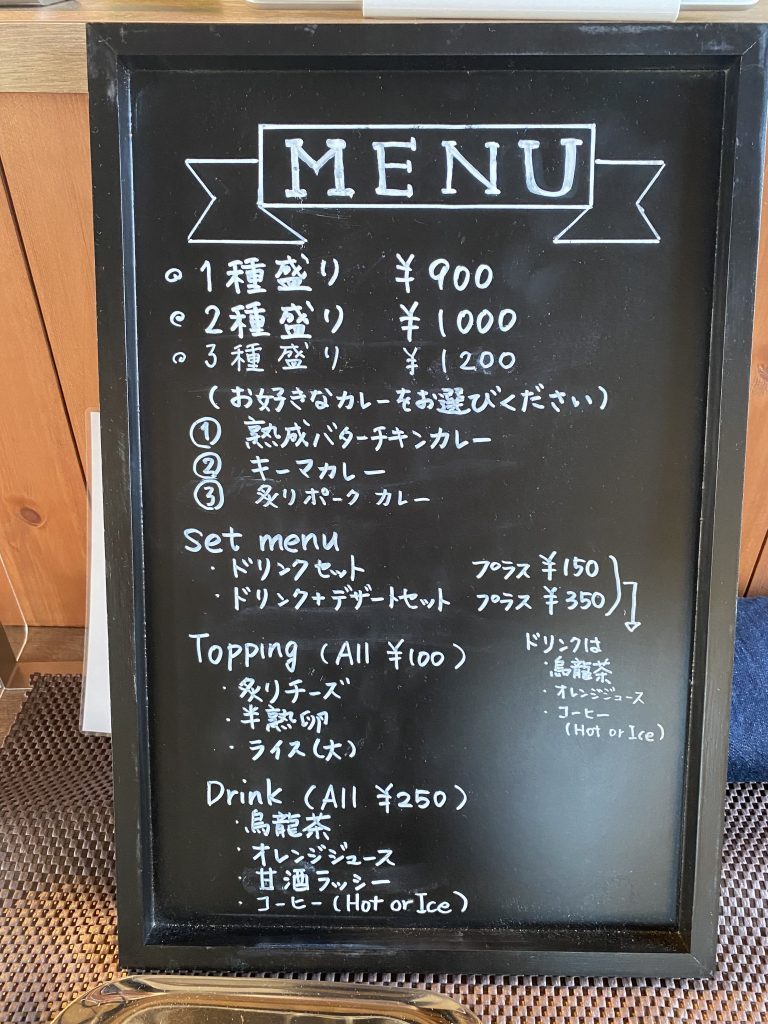 MENU
1種盛り ¥900
2種盛り ¥1000
3種盛り ¥1200
(お好きなカレーをお選びください)
① 熟成バターチキンカレー
② キーマカレー
③ 炙りポークカレー
set menu
・ドリンクセット プラス ¥150
・ドリンク+デザートセット プラス ¥350
ドリンクは
・烏龍茶
・オレンジジュース
・コーヒー
(Hot or Ice)
Topping (All ¥100)
・炙りチーズ
・半熟卵
・ライス(大)
Drink (All ¥250)
・烏龍茶
・オレンジジュース
・甘酒ラッシー
・コーヒー(Hot or Ice)